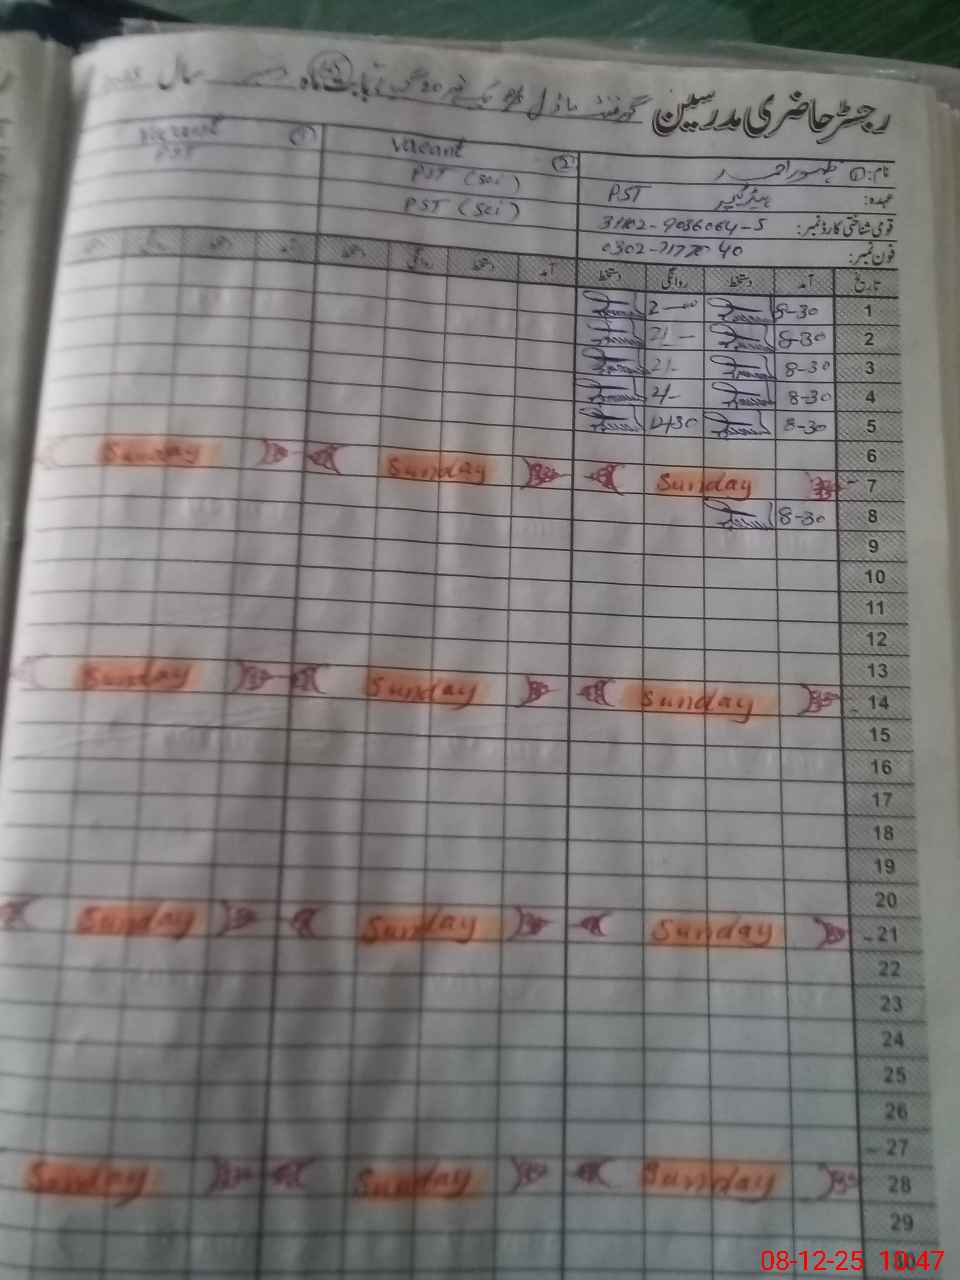 رجسٹر حاضری مدرسین گورنمنٹ ماڈل پرائمری بابت ماہ دسمبر سال
نام: ① ظہور احمد
Vacant (2)
Vacant (3)
عہدہ: ہیڈ ٹیچر PST
PST (Sci)
PST
قومی شناختی کارڈ نمبر: 31102-9036064-5
PST (Sci)
فون نمبر: 0302-7177040
تاریخ آمد دستخط روانگی دستخط آمد دستخط روانگی دستخط
1 8-30 2-00
2 8-30 2/-
3 8-30 2/-
4 8-30 2/-
5 8-30 12/30
6
7 Sunday Sunday Sunday
8 8-30
9
10
11
12
13
14 Sunday Sunday Sunday
15
16
17
18
19
20
21 Sunday Sunday Sunday
22
23
24
25
26
27
28 Sunday Sunday Sunday
29
08-12-25 10:47